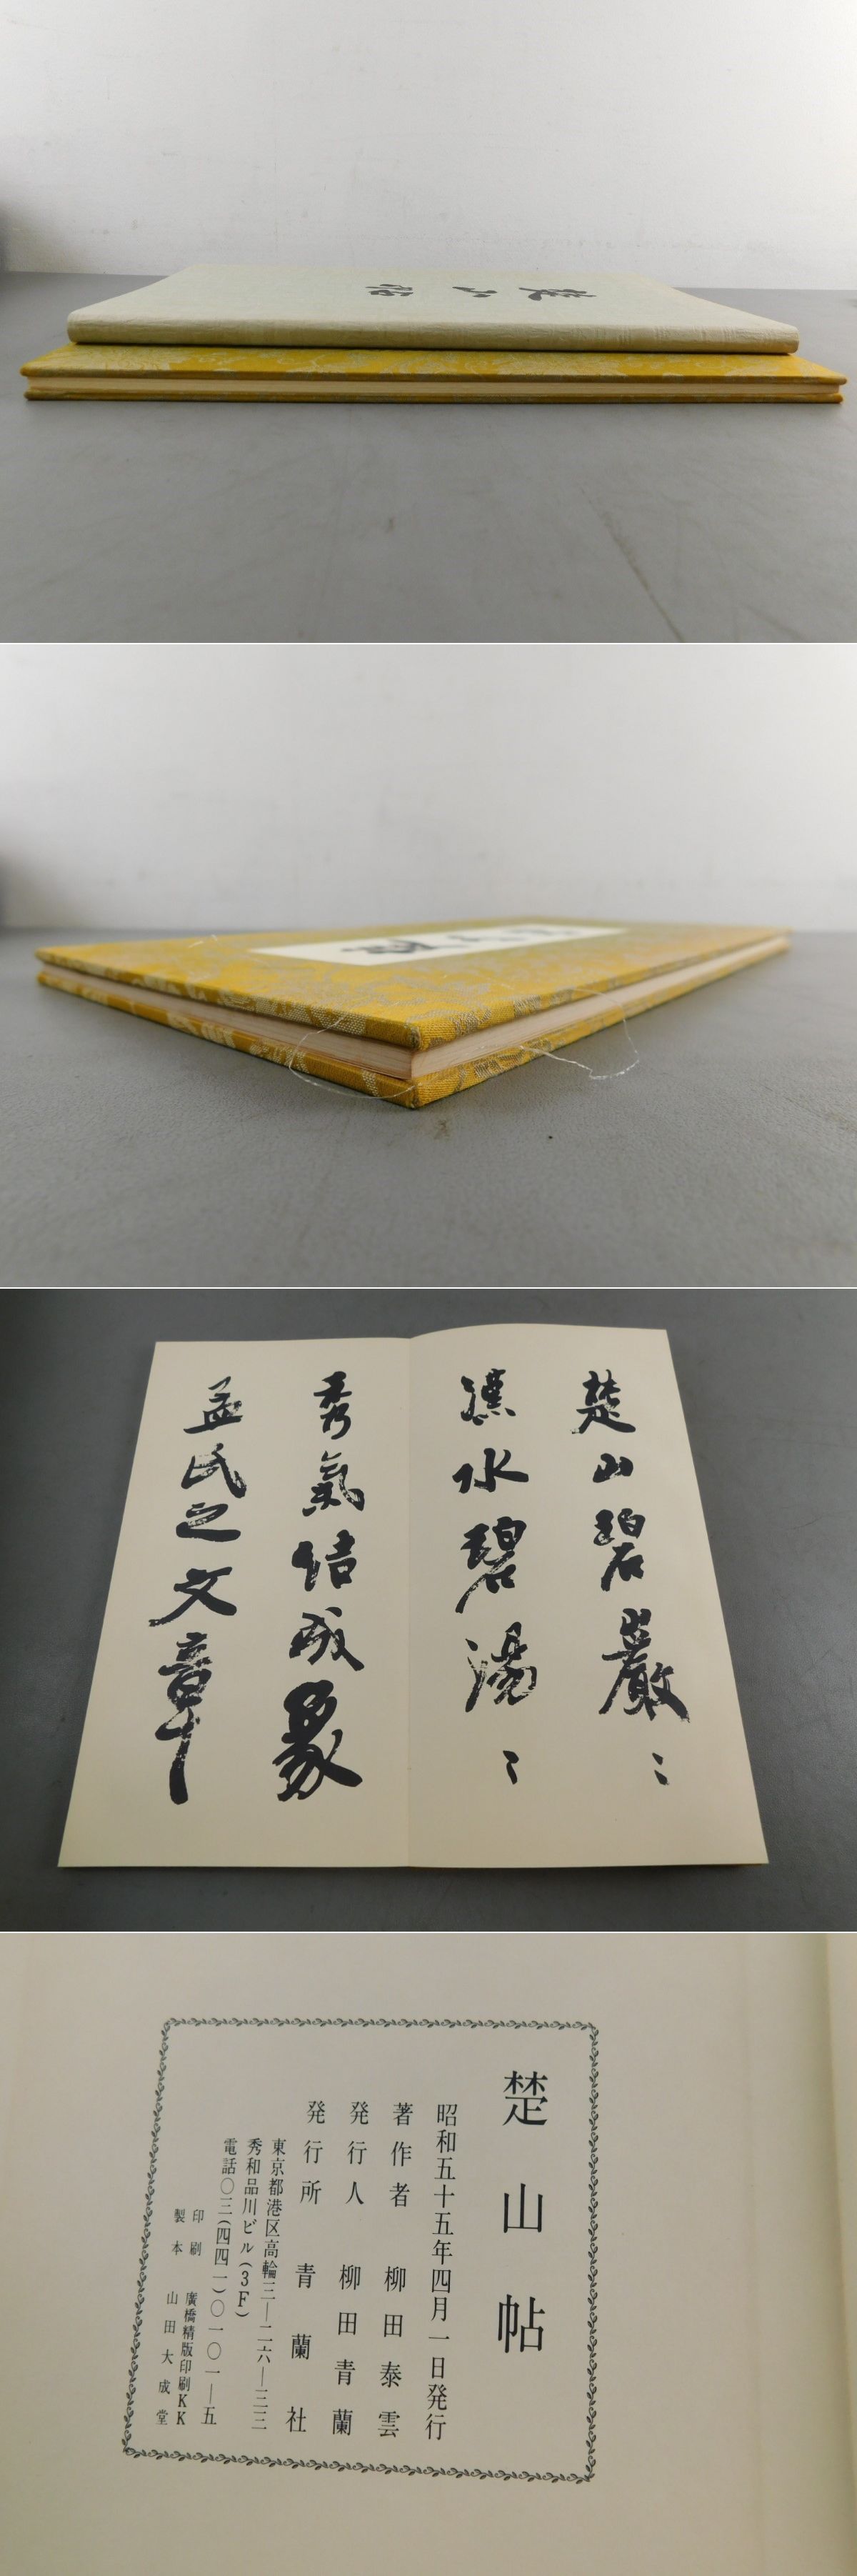 楚山帖
楚山碧巖〻
漢水碧湯〻
秀氣結成象
孟氏之文章
楚山帖
昭和五十五年四月一日発行
著作者 柳田泰雲
発行人 柳田青蘭
発行所 青蘭社
東京都港区高輪三―二六―三三
秀和品川ビル(3F)
電話〇三(四四一)〇一〇一―五
印刷 廣橋精版印刷KK
製本 山田大成堂